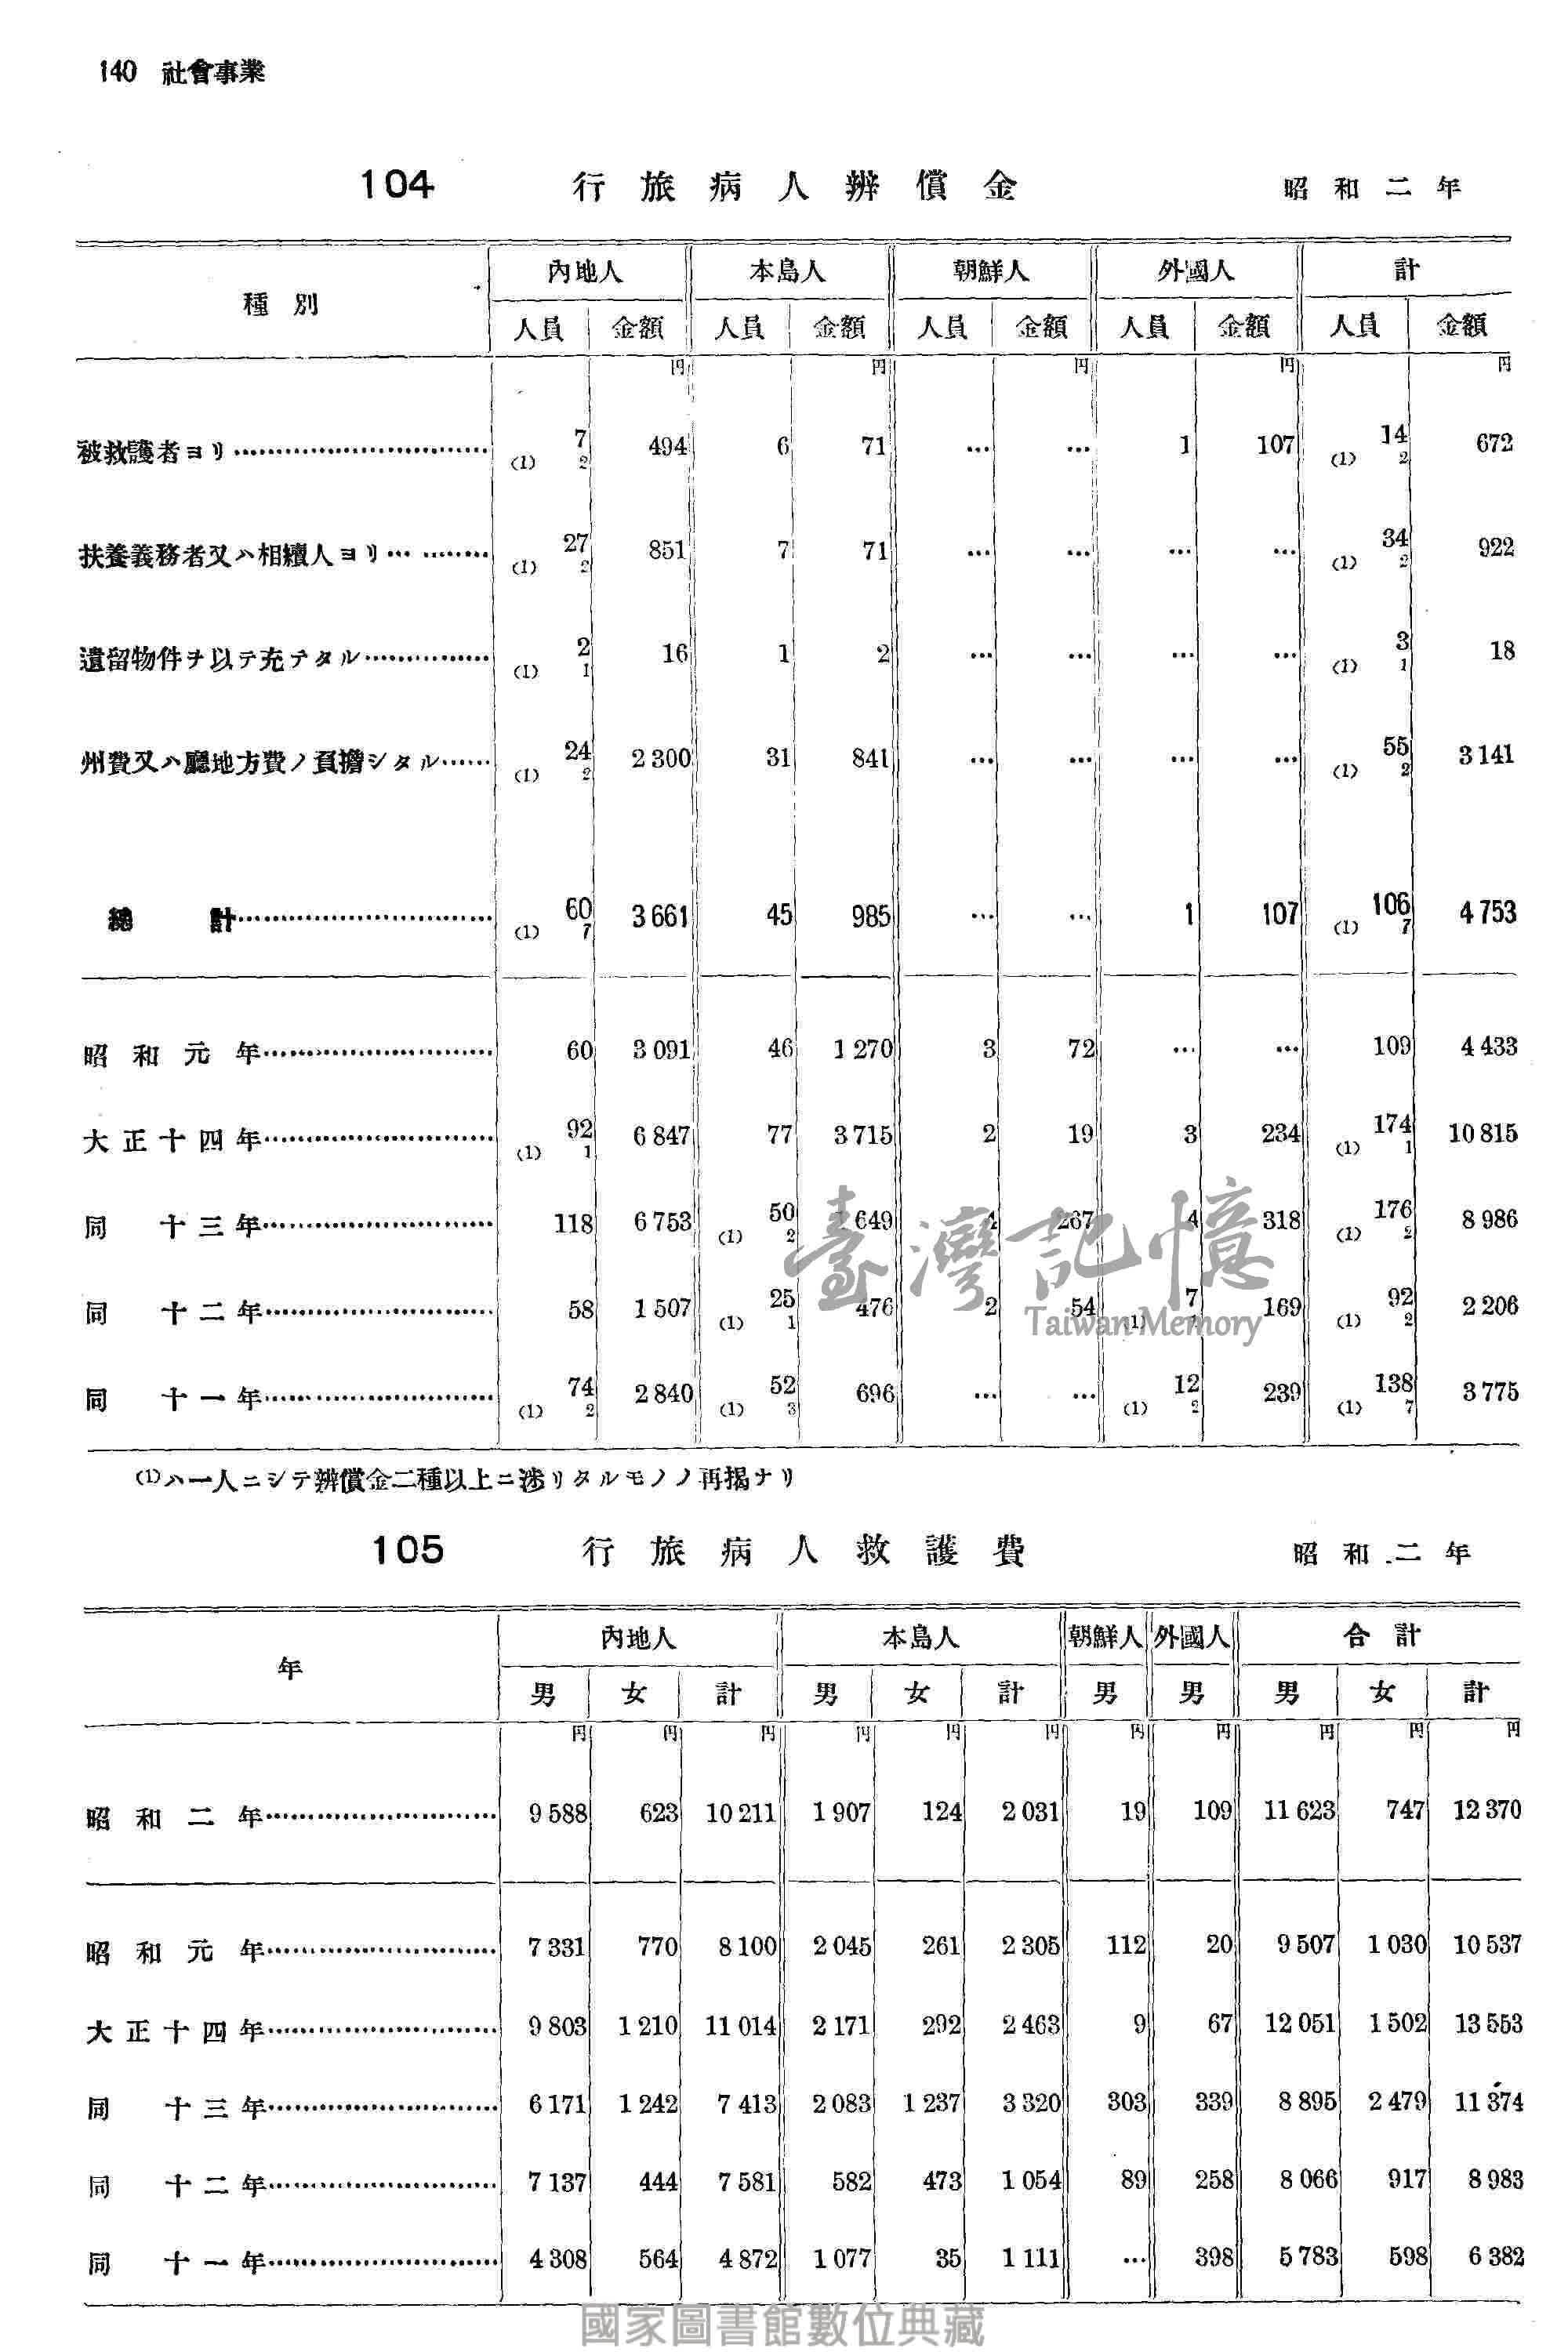 140 社會事業
104 行旅病人辨償金 昭和二年
種別 內地人 本島人 朝鮮人 外國人 計
人員 金額 人員 金額 人員 金額 人員 金額 人員 金額
円 円 円 円 円
被救護者ヨリ………… 7 494 6 71 … … 1 107 14 672
(1) 2 (1) 2
扶養義務者又ハ相續人ヨリ………… 27 851 7 71 … … … … 34 922
(1) 2 (1) 2
遺留物件ヲ以テ充テタル………… 2 16 1 2 … … … … 3 18
(1) 1 (1) 1
州費又ハ廳地方費ノ負擔シタル…… 24 2 300 31 841 … … … … 55 3 141
(1) 2 (1) 2
總計………… 60 3 661 45 985 … … 1 107 106 4 753
(1) 7 (1) 7
昭和元年………… 60 3 091 46 1 270 3 72 … … 109 4 433
大正十四年………… 92 6 847 77 3 715 2 19 3 234 174 10 815
(1) 1 (1) 1
同十三年………… 118 6 753 50 649 4 267 4 318 176 8 986
(1) 2 (1) 2
同十二年………… 58 1 507 25 476 2 54 7 169 92 2 206
(1) 1 (1) (1) 2
同十一年………… 74 2 840 52 696 … … 12 239 138 3 775
(1) 2 (1) 3 (1) 2 (1) 7
臺灣記憶
Taiwan Memory
(1)ハ一人ニシテ辨償金二種以上ニ涉リタルモノノ再揭ナリ
105 行旅病人救護費 昭和二年
年 內地人 本島人 朝鮮人 外國人 合計
男 女 計 男 女 計 男 男 男 女 計
円 円 円 円 円 円 円 円 円 円 円
昭和二年………… 9 588 623 10 211 1 907 124 2 031 19 109 11 623 747 12 370
昭和元年………… 7 331 770 8 100 2 045 261 2 305 112 20 9 507 1 030 10 537
大正十四年………… 9 803 1 210 11 014 2 171 292 2 463 9 67 12 051 1 502 13 553
同十三年………… 6 171 1 242 7 413 2 083 1 237 3 320 303 339 8 895 2 479 11 374
同十二年………… 7 137 444 7 581 582 473 1 054 89 258 8 066 917 8 983
同十一年………… 4 308 564 4 872 1 077 35 1 111 … 398 5 783 598 6 382
國家圖書館數位典藏